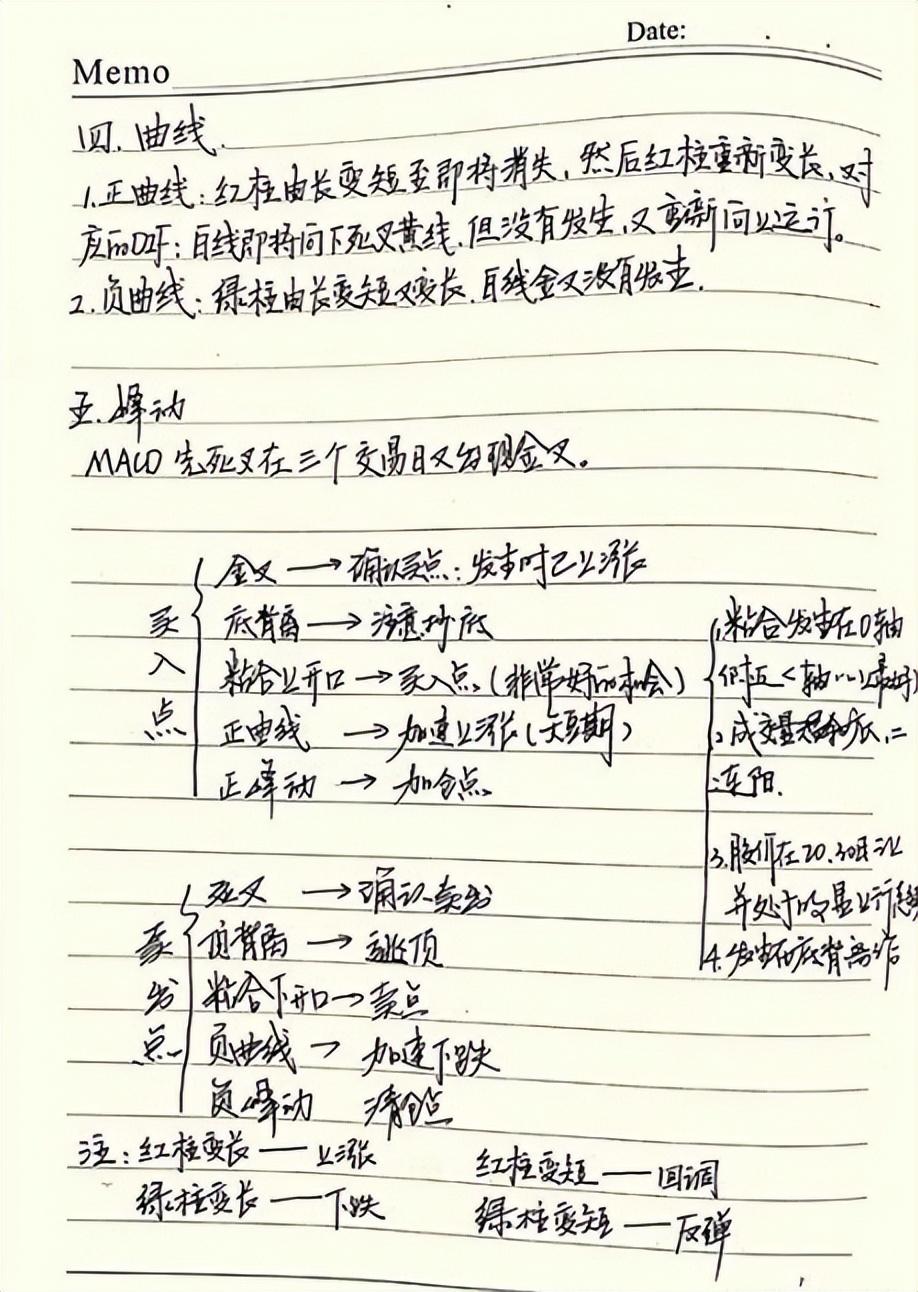 Date:
Memo
四.曲线.
1.正曲线:红柱由长变短至即将消失,然后红柱重新变长,对
应的DIF:白线即将向下死叉黄线,但没有发生,又重新向上运行。
2.负曲线:绿柱由长变短又变长,白线金叉没有发生.
五.峰动
MACD先死叉在三个交易日又出现金叉。
买入点
金叉→确认买点:发生时已上涨
底背离→注意抄底
粘合上开口→买入点(非常好的机会)
正曲线→加速上涨(短期)
正峰动→加仓点
1.粘合发生在0轴
附近<轴以上最好
2.成交量 二
连阳.
3.股价在20.30日
并处于明显上行
4.发生在底背离后
卖出点
死叉→确认卖出
顶背离→逃顶
粘合下开口→卖点
负曲线→加速下跌
负峰动 清仓点
注:红柱变长——上涨 红柱变短——回调
绿柱变长——下跌 绿柱变短——反弹